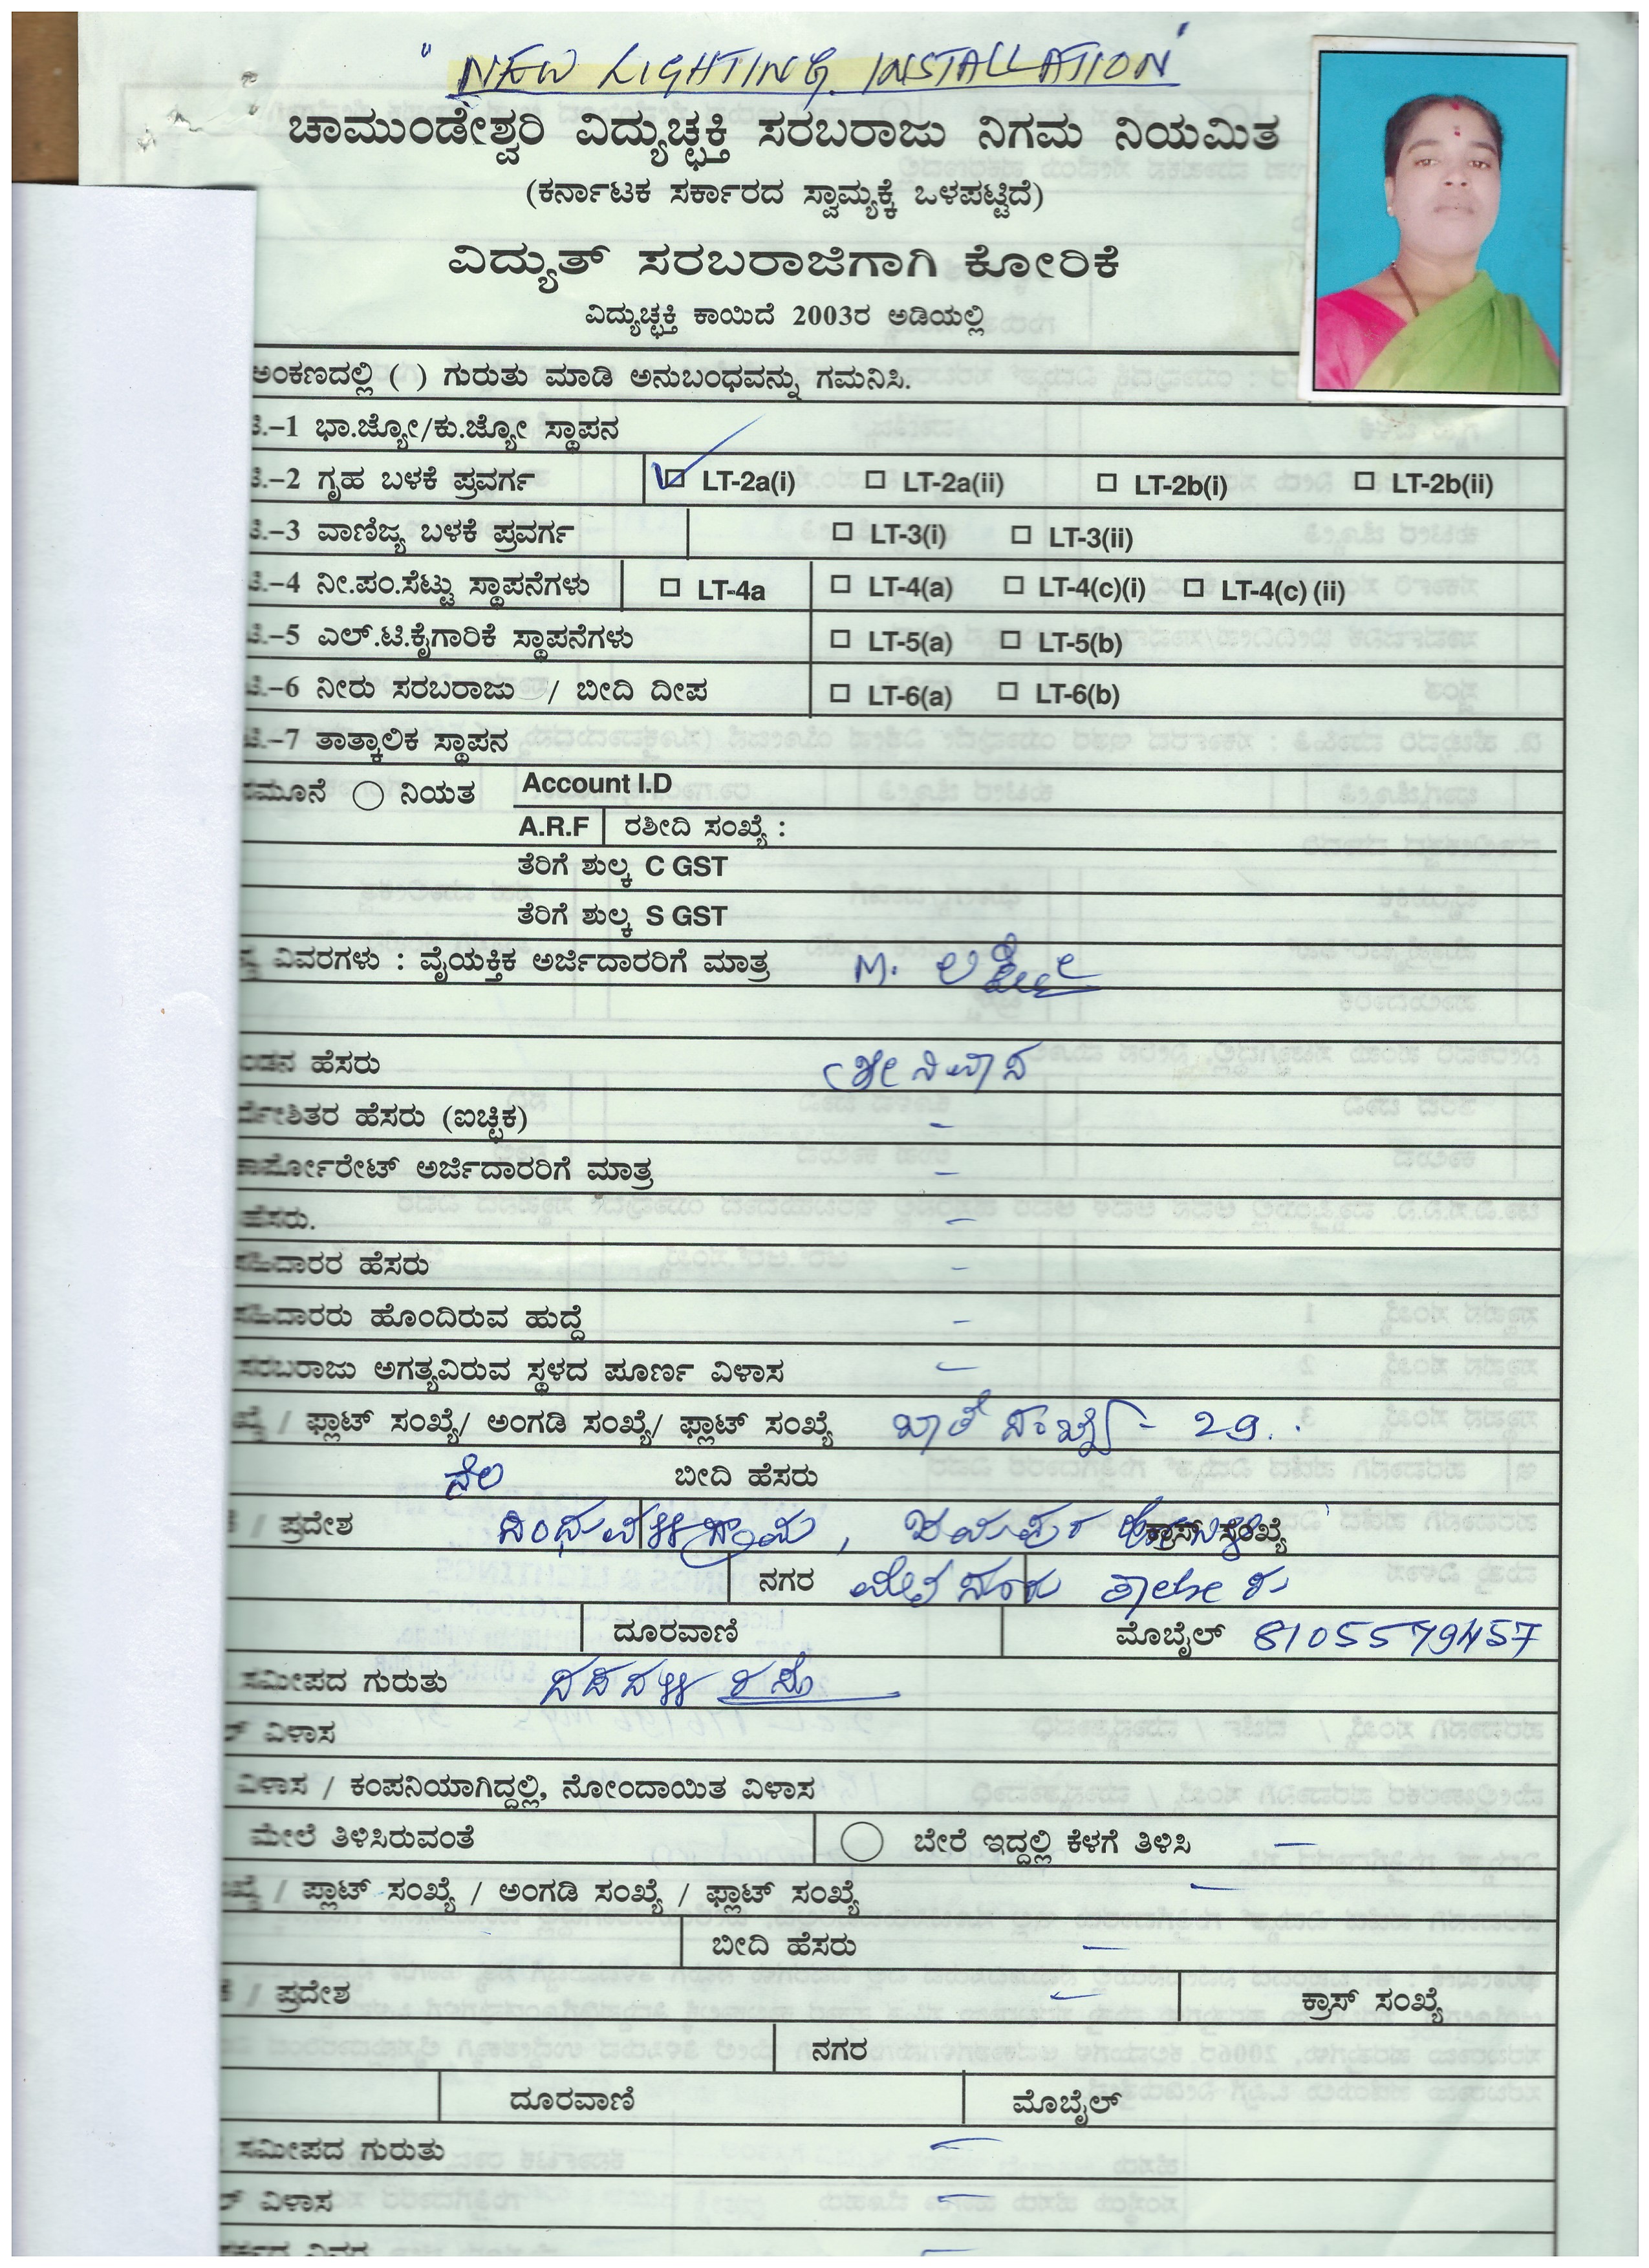 " NEW LIGHTING INSTALLATION "
ಚಾಮುಂಡೇಶ್ವರಿ ವಿದ್ಯುಚ್ಛಕ್ತಿ ಸರಬರಾಜು ನಿಗಮ ನಿಯಮಿತ
(ಕರ್ನಾಟಕ ಸರ್ಕಾರದ ಸ್ವಾಮ್ಯಕ್ಕೆ ಒಳಪಟ್ಟಿದೆ)
ವಿದ್ಯುತ್ ಸರಬರಾಜಿಗಾಗಿ ಕೋರಿಕೆ
ವಿದ್ಯುಚ್ಛಕ್ತಿ ಕಾಯಿದೆ 2003ರ ಅಡಿಯಲ್ಲಿ
ಅಂಕಣದಲ್ಲಿ ( ) ಗುರುತು ಮಾಡಿ ಅನುಬಂಧವನ್ನು ಗಮನಿಸಿ.
ಟಿ.–1 ಭಾ.ಜ್ಯೋ/ಕು.ಜ್ಯೋ ಸ್ಥಾಪನ
ಟಿ.–2 ಗೃಹ ಬಳಕೆ ಪ್ರವರ್ಗ LT-2a(i) LT-2a(ii) LT-2b(i) LT-2b(ii)
ಟಿ.–3 ವಾಣಿಜ್ಯ ಬಳಕೆ ಪ್ರವರ್ಗ LT-3(i) LT-3(ii)
ಟಿ.–4 ನೀ.ಪಂ.ಸೆಟ್ಟು ಸ್ಥಾಪನೆಗಳು LT-4a LT-4(a) LT-4(c)(i) LT-4(c) (ii)
ಟಿ.–5 ಎಲ್.ಟಿ.ಕೈಗಾರಿಕೆ ಸ್ಥಾಪನೆಗಳು LT-5(a) LT-5(b)
ಟಿ.–6 ನೀರು ಸರಬರಾಜು / ಬೀದಿ ದೀಪ LT-6(a) LT-6(b)
ಟಿ.–7 ತಾತ್ಕಾಲಿಕ ಸ್ಥಾಪನ
ನಮೂನೆ ನಿಯತ Account I.D
A.R.F ರಶೀದಿ ಸಂಖ್ಯೆ :
ತೆರಿಗೆ ಶುಲ್ಕ C GST
ತೆರಿಗೆ ಶುಲ್ಕ S GST
ವಿವರಗಳು : ವೈಯಕ್ತಿಕ ಅರ್ಜಿದಾರರಿಗೆ ಮಾತ್ರ M. ಲಕ್ಷ್ಮೀ
ಹೆಸರು ಶ್ರೀನಿವಾಸ
ಹೆಸರು (ಐಚ್ಛಿಕ) –
ಕಾರ್ಪೋರೇಟ್ ಅರ್ಜಿದಾರರಿಗೆ ಮಾತ್ರ –
ಹೆಸರು. –
ಸಹಿದಾರರ ಹೆಸರು –
ಸಹಿದಾರರು ಹೊಂದಿರುವ ಹುದ್ದೆ –
ಸರಬರಾಜು ಅಗತ್ಯವಿರುವ ಸ್ಥಳದ ಪೂರ್ಣ ವಿಳಾಸ –
/ ಫ್ಲಾಟ್ ಸಂಖ್ಯೆ/ ಅಂಗಡಿ ಸಂಖ್ಯೆ/ ಫ್ಲಾಟ್ ಸಂಖ್ಯೆ ಖಾತೆ ಸಂಖ್ಯೆ – 29.
ನೆಲ ಬೀದಿ ಹೆಸರು
/ ಪ್ರದೇಶ ಸಿಂಧುವಳ್ಳಿ ಗ್ರಾಮ, ಕ್ರಾಸ್ ಸಂಖ್ಯೆ
ನಗರ ಮೈಸೂರು ತಾಲ್ಲೂಕು
ದೂರವಾಣಿ ಮೊಬೈಲ್ 8105579457
ಸಮೀಪದ ಗುರುತು
ವಿಳಾಸ
ವಿಳಾಸ / ಕಂಪನಿಯಾಗಿದ್ದಲ್ಲಿ, ನೋಂದಾಯಿತ ವಿಳಾಸ
ಮೇಲೆ ತಿಳಿಸಿರುವಂತೆ ಬೇರೆ ಇದ್ದಲ್ಲಿ ಕೆಳಗೆ ತಿಳಿಸಿ –
/ ಪ್ಲಾಟ್ ಸಂಖ್ಯೆ / ಅಂಗಡಿ ಸಂಖ್ಯೆ / ಫ್ಲಾಟ್ ಸಂಖ್ಯೆ –
ಬೀದಿ ಹೆಸರು –
/ ಪ್ರದೇಶ – ಕ್ರಾಸ್ ಸಂಖ್ಯೆ
ನಗರ
ದೂರವಾಣಿ ಮೊಬೈಲ್
ಸಮೀಪದ ಗುರುತು –
ವಿಳಾಸ –